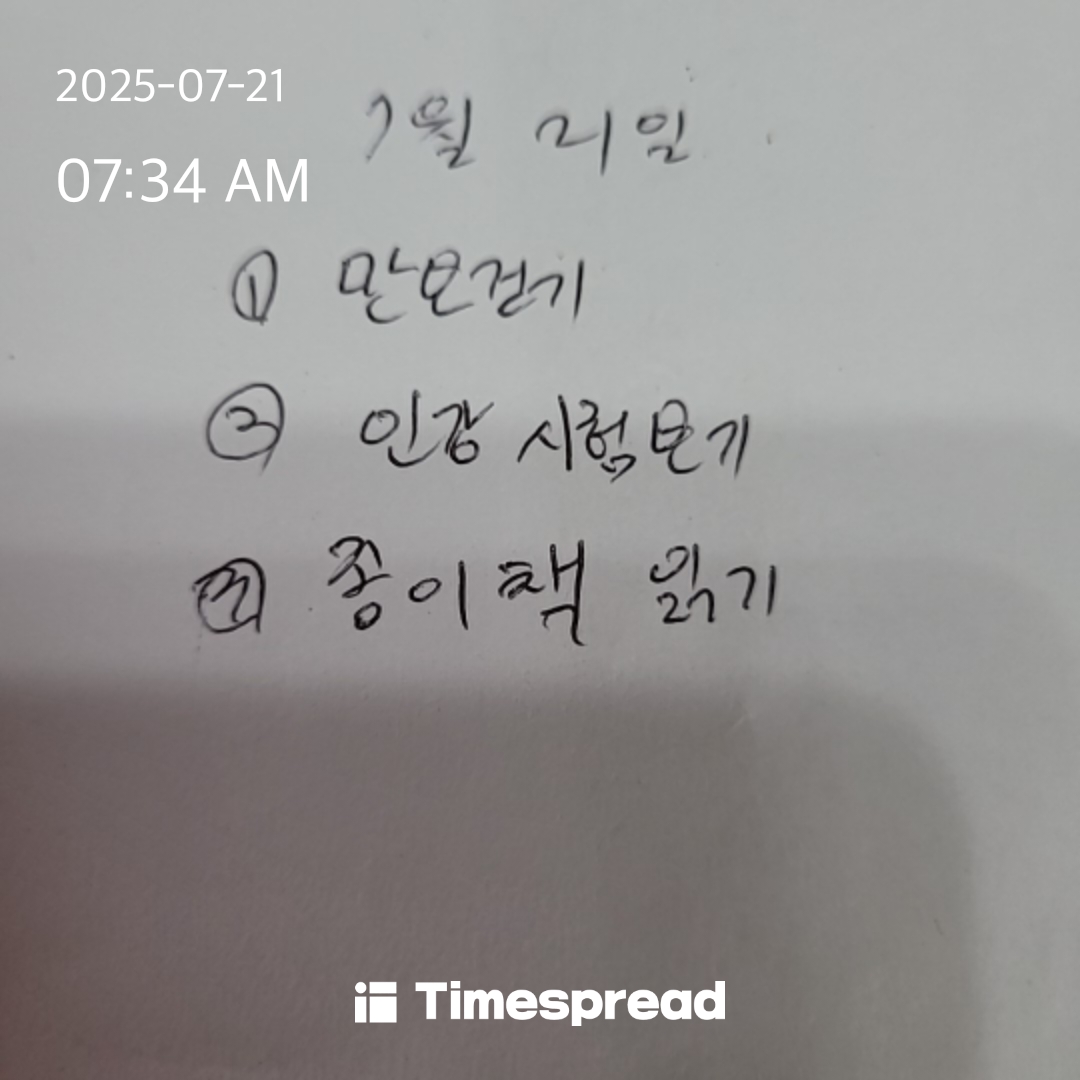 2025-07-21
07:34 AM
7월 21일
① 만보걷기
② 인강 시험보기
③ 종이책 읽기
Timespread